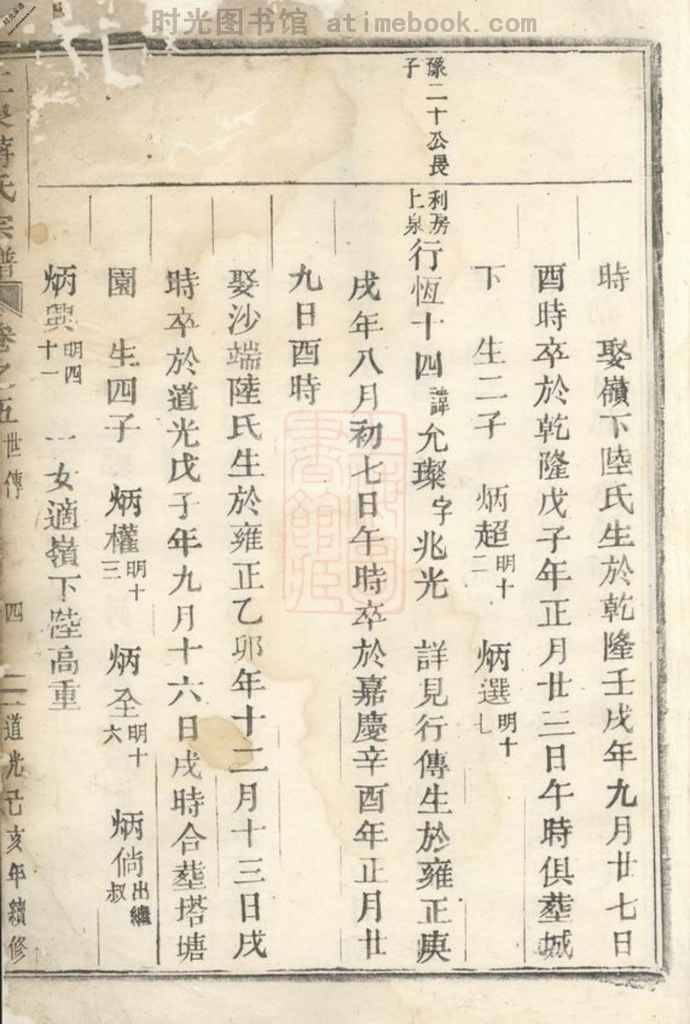 时光图书馆 atimebook.com
時　娶嶺下陸氏生於乾隆壬戌年九月廿七日
酉時卒於乾隆戊子年正月廿三日午時俱塟城
下　生二子　炳超明十二　炳選明十七
豫二十公長子
利房上泉行恆十四諱允璨字兆光　詳見行傳生於雍正庚
戌年八月初七日午時卒於嘉慶辛酉年正月廿
九日酉時
娶沙端陸氏生於雍正乙卯年十二月十三日戌
時卒於道光戊子年九月十六日戌時合塟塔塘
園　生四子　炳權明十三　炳全明十六　炳倘出繼叔
炳興明四十一　一女適嶺下陸高重
蔣氏宗譜　卷之五　世傳　四　道光己亥年續修